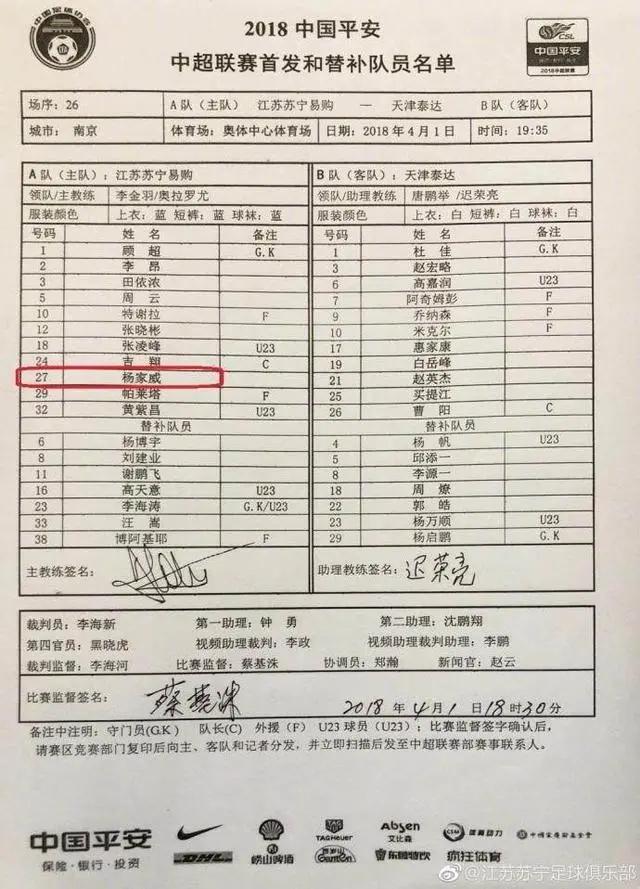 中国足球协会
2018 中国平安
中超联赛首发和替补队员名单
CSL
中国平安
2018中超联赛
场序：26 A 队（主队） 江苏苏宁易购 — 天津泰达 B 队（客队）
城市： 南京 体育场：奥体中心体育场 日期：2018 年 4 月 1 日 时间：19:35
A 队（主队）：江苏苏宁易购 B 队（客队）： 天津泰达
领队/主教练 李金羽/奥拉罗尤 领队/助理教练 唐鹏举 /迟荣亮
服装颜色 上衣：蓝 短裤：蓝 球袜：蓝 服装颜色 上衣：白 短裤：白 球袜：白
号码 姓 名 备注 号码 姓 名 备注
1 顾 超 G.K 1 杜 佳 G.K
2 李 昂 3 赵宏略
3 田依浓 6 高嘉润 U23
5 周 云 7 阿奇姆彭 F
10 特谢拉 F 9 乔纳森 F
12 张晓彬 10 米克尔 F
18 张凌峰 U23 17 惠家康
24 吉 翔 C 19 白岳峰
27 杨家威 21 赵英杰
29 帕莱塔 F 25 买提江
32 黄紫昌 U23 26 曹 阳 C
替补队员 替补队员
6 杨博宇 4 杨 帆 U23
8 刘建业 5 邱添一
11 谢鹏飞 8 李源一
16 高天意 U23 18 周 燎
23 李海涛 G.K/U23 22 郭 皓
33 汪 嵩 23 杨万顺 U23
38 博阿基耶 F 29 杨启鹏 G.K
主教练签名： 助理教练签名：迟荣亮
裁判员：李海新 第一助理：钟 勇 第二助理：沈鹏翔
第四官员：黑晓虎 视频助理裁判：李政 视频助理裁判助理：李鹏
裁判监督：李海河 比赛监督：蔡基洙 协调员：郑瀚 新闻官：赵云
比赛监督签名： 蔡基洙 2018 年 4 月 1 日 18 时 30 分
备注中注明：守门员(G.K) 队长(C) 外援（F） U23 球员（U23）；比赛监督签字确认后，
请赛区竞赛部门复印后向主、客队和记者分发，并立即扫描后发至中超联赛部赛事联系人。
中国平安
保险·银行·投资
TAGHeuer
Absen
艾比森
CSM 体育动力
DHL
崂山啤酒
Ganten
东鹏特饮
疯狂体育
@江苏苏宁足球俱乐部